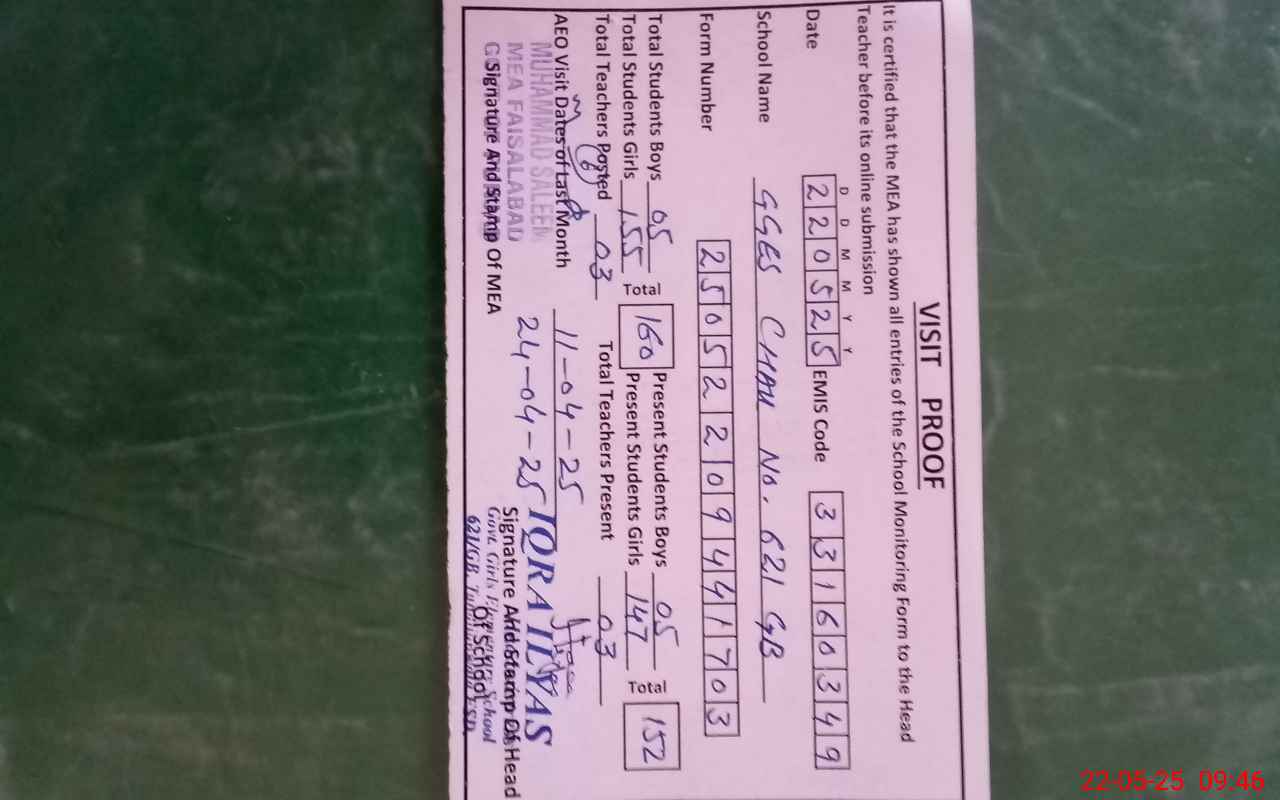 VISIT PROOF
It is certified that the MEA has shown all entries of the School Monitoring Form to the Head
Teacher before its online submission
D D M M Y Y
Date 220525 EMIS Code 33160349
School Name GGES CHAK No. 621 GB
Form Number 25052209441703
Total Students Boys 05 Present Students Boys 05
Total Students Girls 155 Total 160 Present Students Girls 147 Total 152
Total Teachers Posted 03 Total Teachers Present 03
AEO Visit Dates of Last Month 11-04-25
24-04-25
MUHAMMAD SALEEM
MEA FAISALABAD
Signature And Stamp Of MEA
IQRA ILYAS
Signature And Stamp Of Head
Of School
Govt. Girls Elementary School
621/GB.
22-05-25 09:46